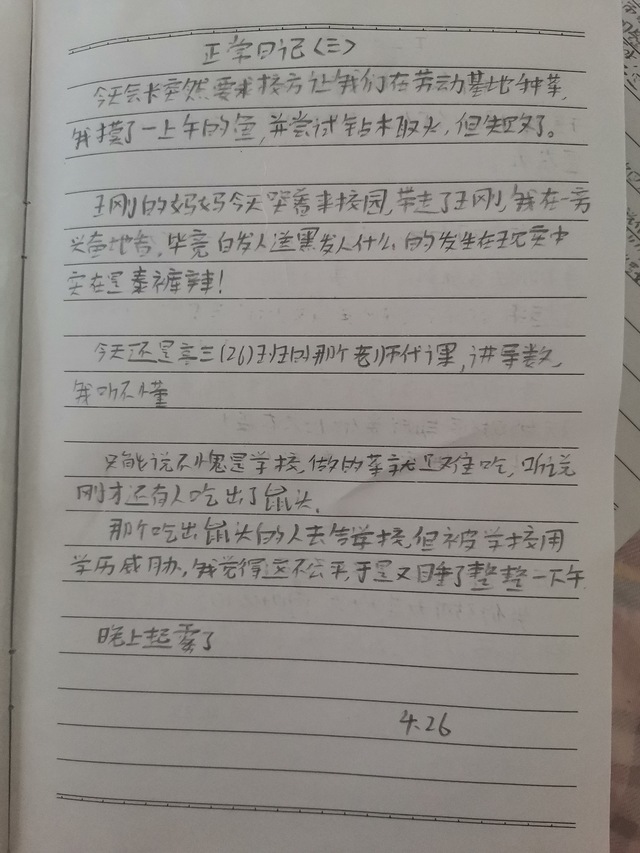 正学日记(三)
今天会长突然要求校方让我们在劳动基地种菜,
我摸了一上午的鱼,并尝试钻木取火,但失败了。
王刚的妈妈今天哭着来校园,带走了王刚,我在一旁
兴奋地看,毕竟白发人送黑发人什么的发生在现实中
实在是泰裤辣!
今天还是高三(26)班的那个老师代课,讲导数,
我听不懂
只能说不愧是学校,做的菜就是难吃,听说
刚才还有人吃出了鼠头。
那个吃出鼠头的人去告学校,但被学校用
学历威胁,我觉得这不公平,于是又睡了整整一下午
晚上起雾了
4.26